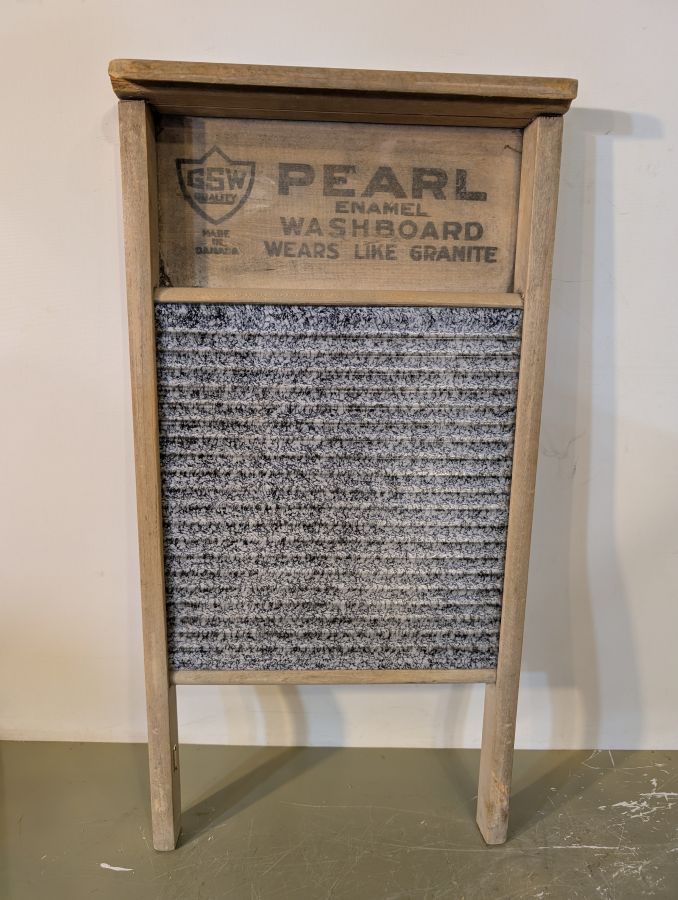 GSW
QUALITY
MADE
IN
CANADA
PEARL
ENAMEL
WASHBOARD
WEARS LIKE GRANITE